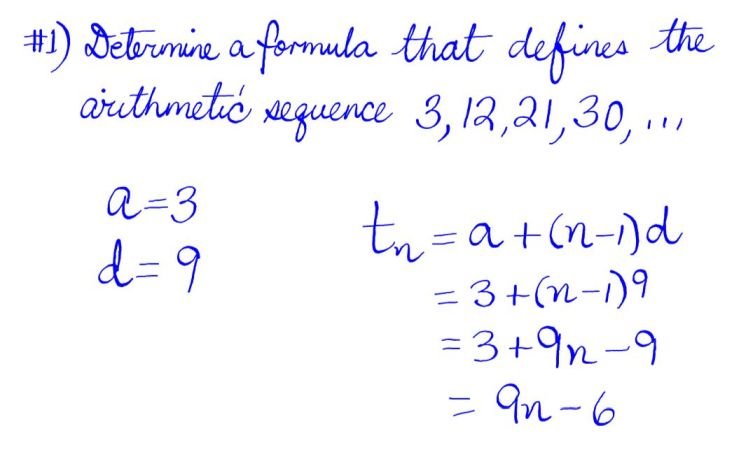 #1) Determine a formula that defines the
arithmetic sequence 3, 12, 21, 30, ...
a = 3
d = 9
tₙ = a + (n-1)d
= 3 + (n-1)9
= 3 + 9n - 9
= 9n - 6